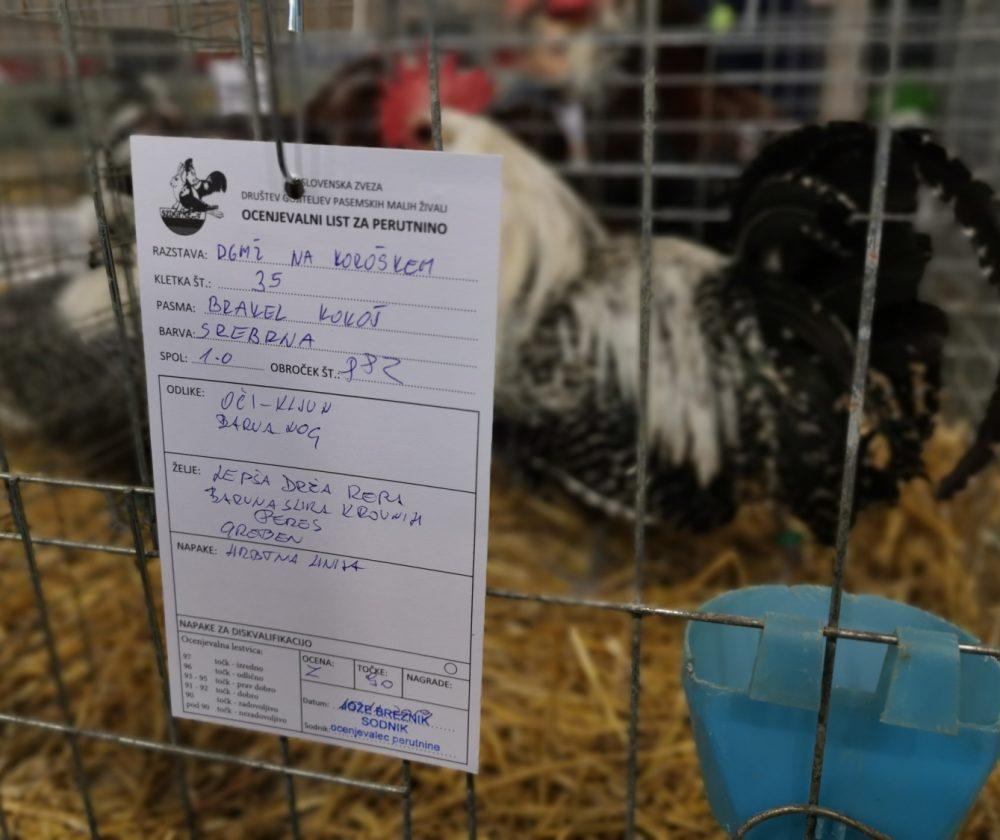 SLOVENSKA ZVEZA
DRUŠTEV GOJITELJEV PASEMSKIH MALIH ŽIVALI
OCENJEVALNI LIST ZA PERUTNINO
RAZSTAVA: DGMŽ NA KOROŠKEM
KLETKA ŠT.: 35
PASMA: BRAKEL KOKOŠ
BARVA: SREBRNA
SPOL: 1.0 OBROČEK ŠT.: 982
ODLIKE: OČI-KLJUN
BARVA NOG
ŽELJE: LEPŠA DRŽA REPA
BARVNA SLIKA KROVNIH
PERES
GREBEN
NAPAKE: HRBTNA LINIJA
NAPAKE ZA DISKVALIFIKACIJO
Ocenjevalna lestvica:
97 točk - izredno
96 točk - odlično
93 - 95 točk - prav dobro
91 - 92 točk - dobro
90 točk - zadovoljivo
pod 90 točk - nezadovoljivo
OCENA: Z
TOČKE: 90
NAGRADE:
Datum:
JOŽE BREZNIK
SODNIK
Sodnik: ocenjevalec perutnine